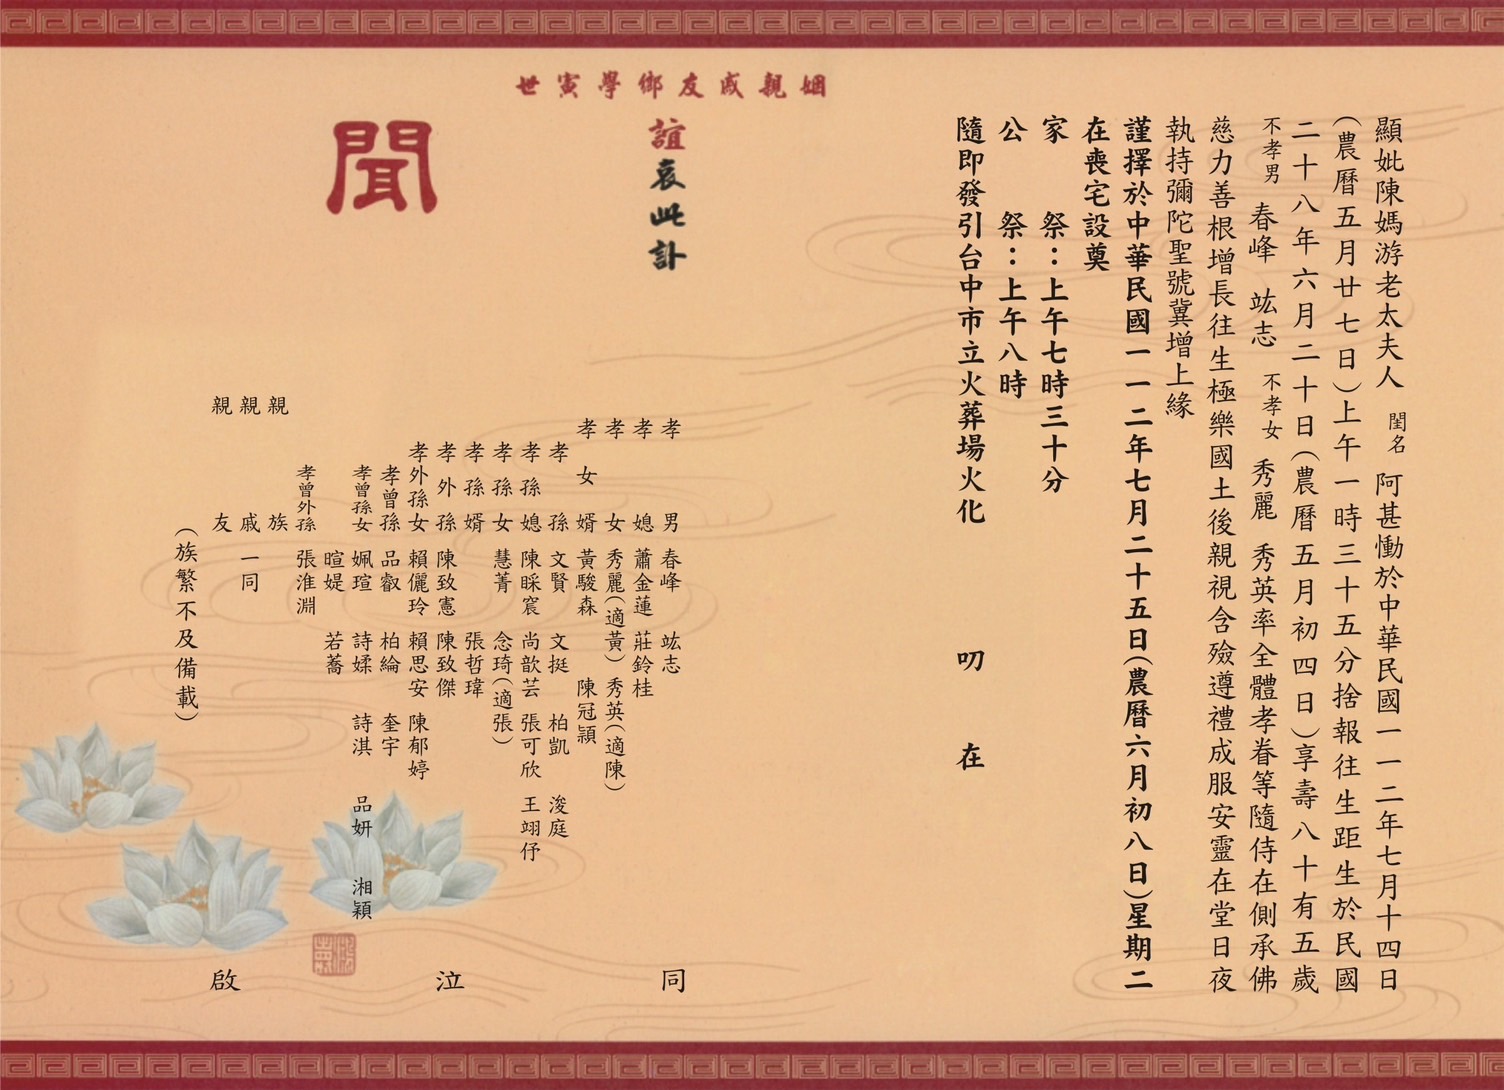 顯妣陳媽游老太夫人 閨名 阿甚慟於中華民國一一二年七月十四日
(農曆五月廿七日)上午一時三十五分捨報往生距生於民國
二十八年六月二十日(農曆五月初四日)享壽八十有五歲
不孝男 春峰 竑志 不孝女 秀麗 秀英率全體孝眷等隨侍在側承佛
慈力善根增長往生極樂國土後親視含殮遵禮成服安靈在堂日夜
執持彌陀聖號冀增上緣
謹擇於中華民國一一二年七月二十五日(農曆六月初八日)星期二
在喪宅設奠
家 祭:上午七時三十分
公 祭:上午八時
隨即發引台中市立火葬場火化 叨 在
姻親戚友鄉學寅世
誼哀此訃
聞
孝男 春峰 竑志
孝媳 蕭金蓮 莊鈴桂
孝女 秀麗(適黃) 秀英(適陳)
孝女婿 黃駿森 陳冠穎
孝孫 文賢 文挺 柏凱 浚庭
孝孫媳 陳睬宸 尚歆芸 張可欣 王翊伃
孝孫女 慧菁 念琦(適張)
孝孫婿 張哲瑋
孝外孫 陳致憲 陳致傑
孝外孫女 賴儷玲 賴思安 陳郁婷
孝曾孫 品叡 柏綸 奎宇
孝曾孫女 姵瑄 詩媃 詩淇 品妍 湘穎
暄媞 若蕎
孝曾外孫 張淮淵
親族
親戚 一同
親友
(族繁不及備載)
同 泣 啟